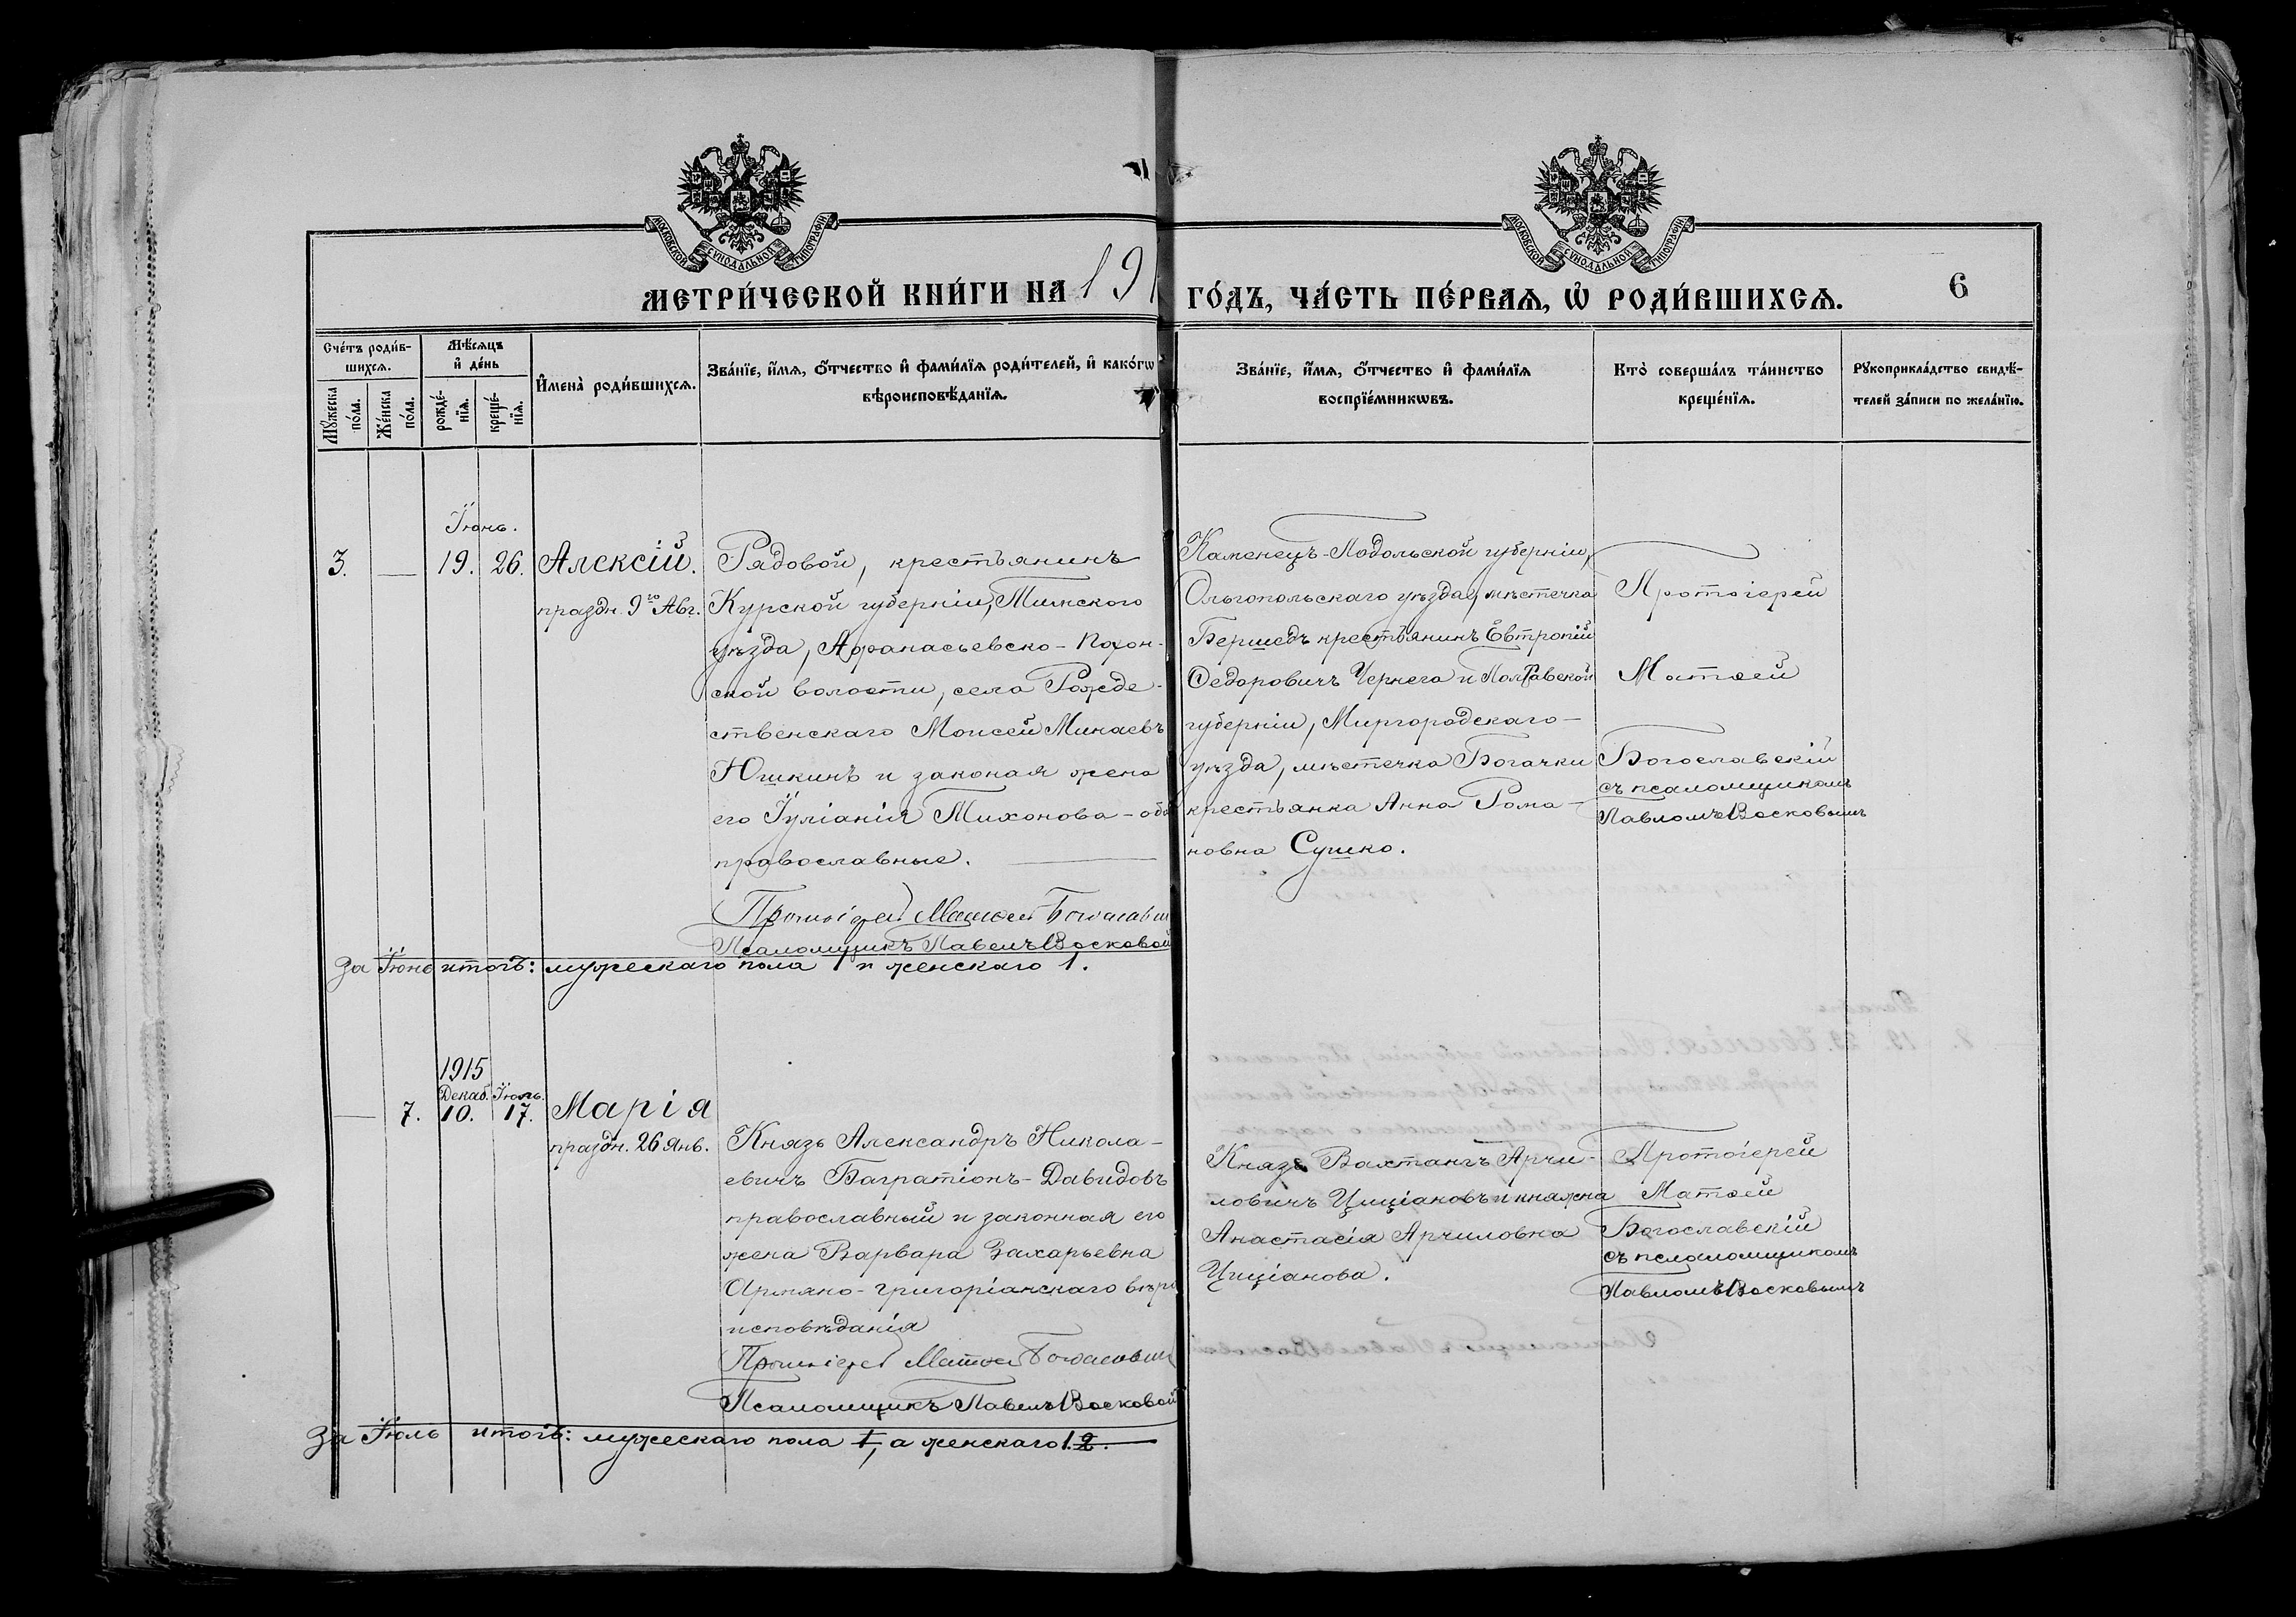 МОСКОВСКОЙ СѴНОДАЛЬНОЙ ТИПОГРАФІИ
МОСКОВСКОЙ СѴНОДАЛЬНОЙ ТИПОГРАФІИ
МЕТРИ́ЧЕСКОЙ КНИ́ГИ НА 191
ГО́ДЪ, ЧА́СТЬ ПЕ́РВАѦ, Ѡ҆ РОДИ́ВШИХСѦ.
6
Сче́тъ роди́в-
шихсѧ.
Мꙋ́жеска
по́ла.
Же́нска
по́ла.
Мѣ́сѧцъ
и҆ де́нь
рожде́-
нїѧ.
креще́-
нїѧ.
И҆мена̀ роди́вшихсѧ.
Зва́нїе, и҆́мѧ, ѻ҆́тчество и҆ фами́лїѧ роди́телей, и҆ како́гѡ
вѣроисповѣ́данїѧ.
Зва́нїе, и҆́мѧ, ѻ҆́тчество и҆ фами́лїѧ
воспрїе́мникѡвъ.
Кто̀ соверша́лъ та́инство
креще́нїѧ.
Рꙋкоприкла́дство свидѣ́-
телей за́писи по жела́нїю.
Іюнь.
3. — 19. 26. Алексій.
праздн. 9го Авг.
Рядовой, крестьянинъ
Курской губерніи, Тимского
уѣзда, Афанасьевско-Похон-
ской волости, села Рожде-
ственскаго Моисей Минаевъ
Юшкинъ и законая жена
его Іуліанія Тихонова - оба
православные.
Протоіерей Матѳей Богославскій
Псаломщикъ Павелъ Восковой
Каменецъ-Подольской губерніи,
Ольгопольскаго уѣзда, мѣстечка
Бершедь крестьянинъ Евтропій
Ѳедоровичъ Чернега и Полтавской
губерніи, Миргородскаго -
уѣзда, мѣстечка Богачки
крестьянка Анна Рома-
новна Сушко.
Протоіерей
Матѳей
Богославскій
съ псаломщикомъ
Павломъ Восковымъ
За Іюнь итогъ: мужескаго пола 1 и женскаго 1.
1915
Декаб. Іюль.
— 7. 10. 17. Марія
праздн. 26 Янв.
Князь Александръ Никола-
евичъ Багратіонъ-Давидовъ
православный и законная его
жена Варвара Захарьевна
Армяно-григоріанскаго вѣро
исповѣданія
Протоіерей Матѳей Богославскій
Псаломщикъ Павелъ Восковой
Князь Вахтангъ Арчи-
ловичъ Циціановъ и княжна
Анастасія Арчиловна
Циціанова.
Протоіерей
Матѳей
Богославскій
съ псаломщикомъ
Павломъ Восковымъ
За Іюль итогъ: мужескаго пола 1, а женскаго 1. 2.